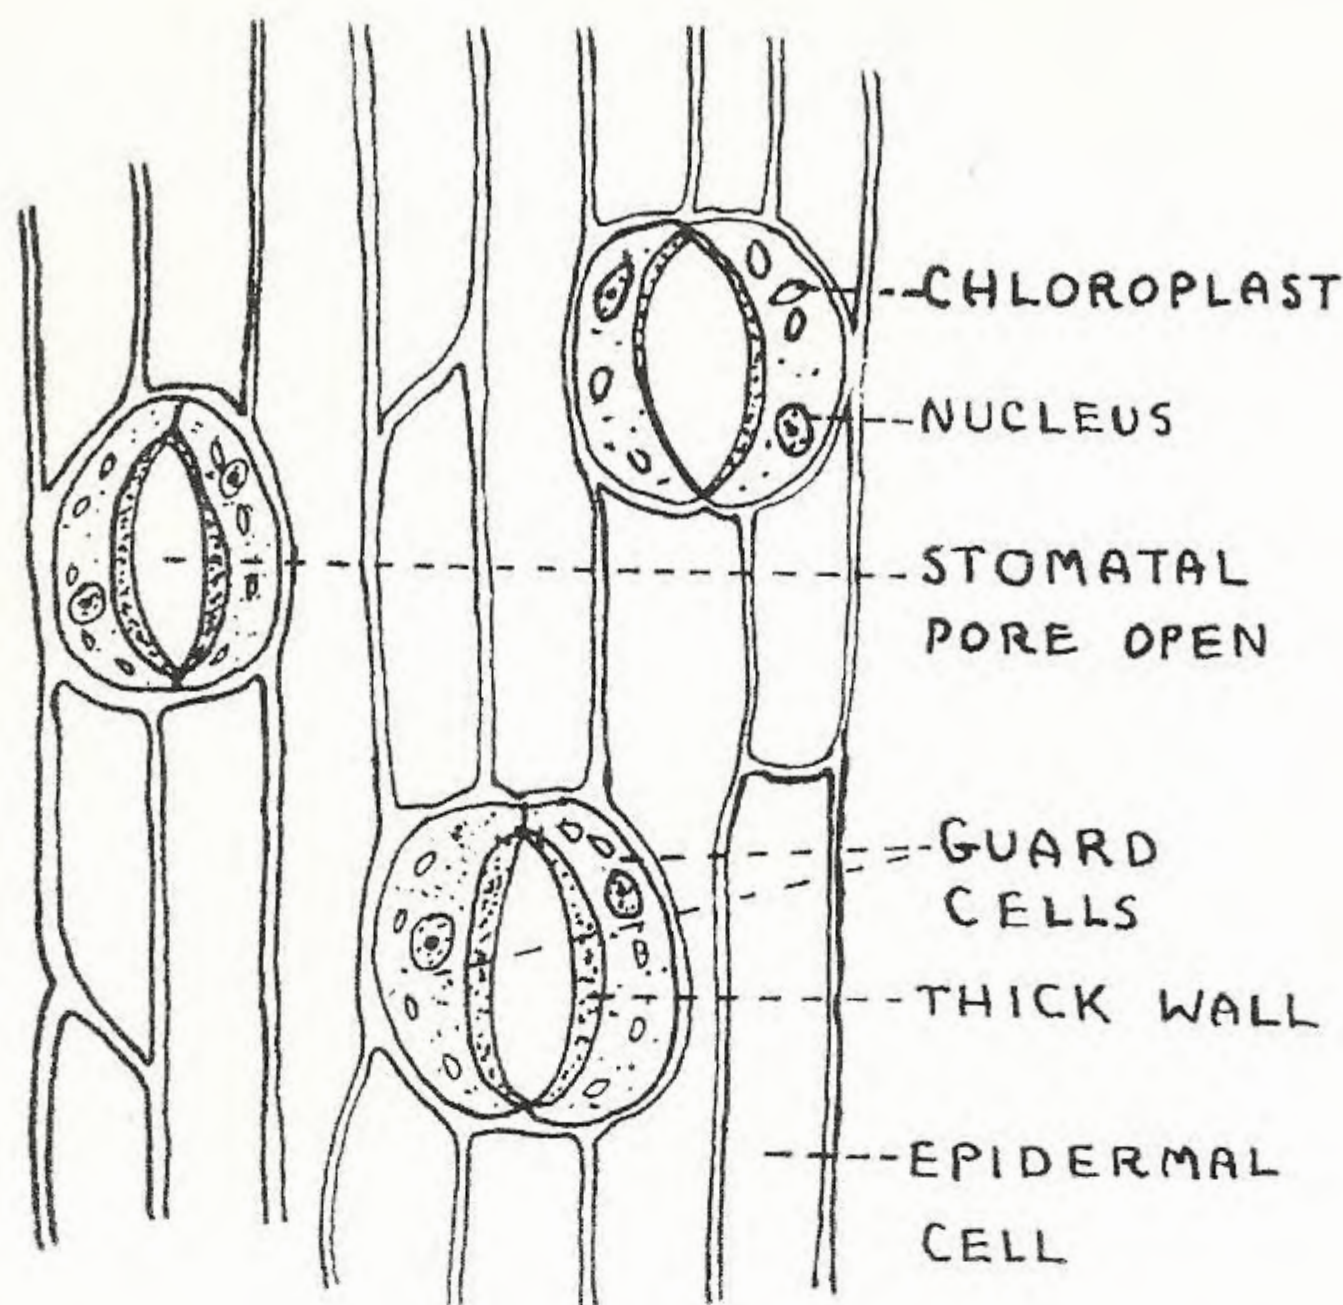 CHLOROPLAST
NUCLEUS
STOMATAL
PORE OPEN
GUARD
CELLS
THICK WALL
EPIDERMAL
CELL